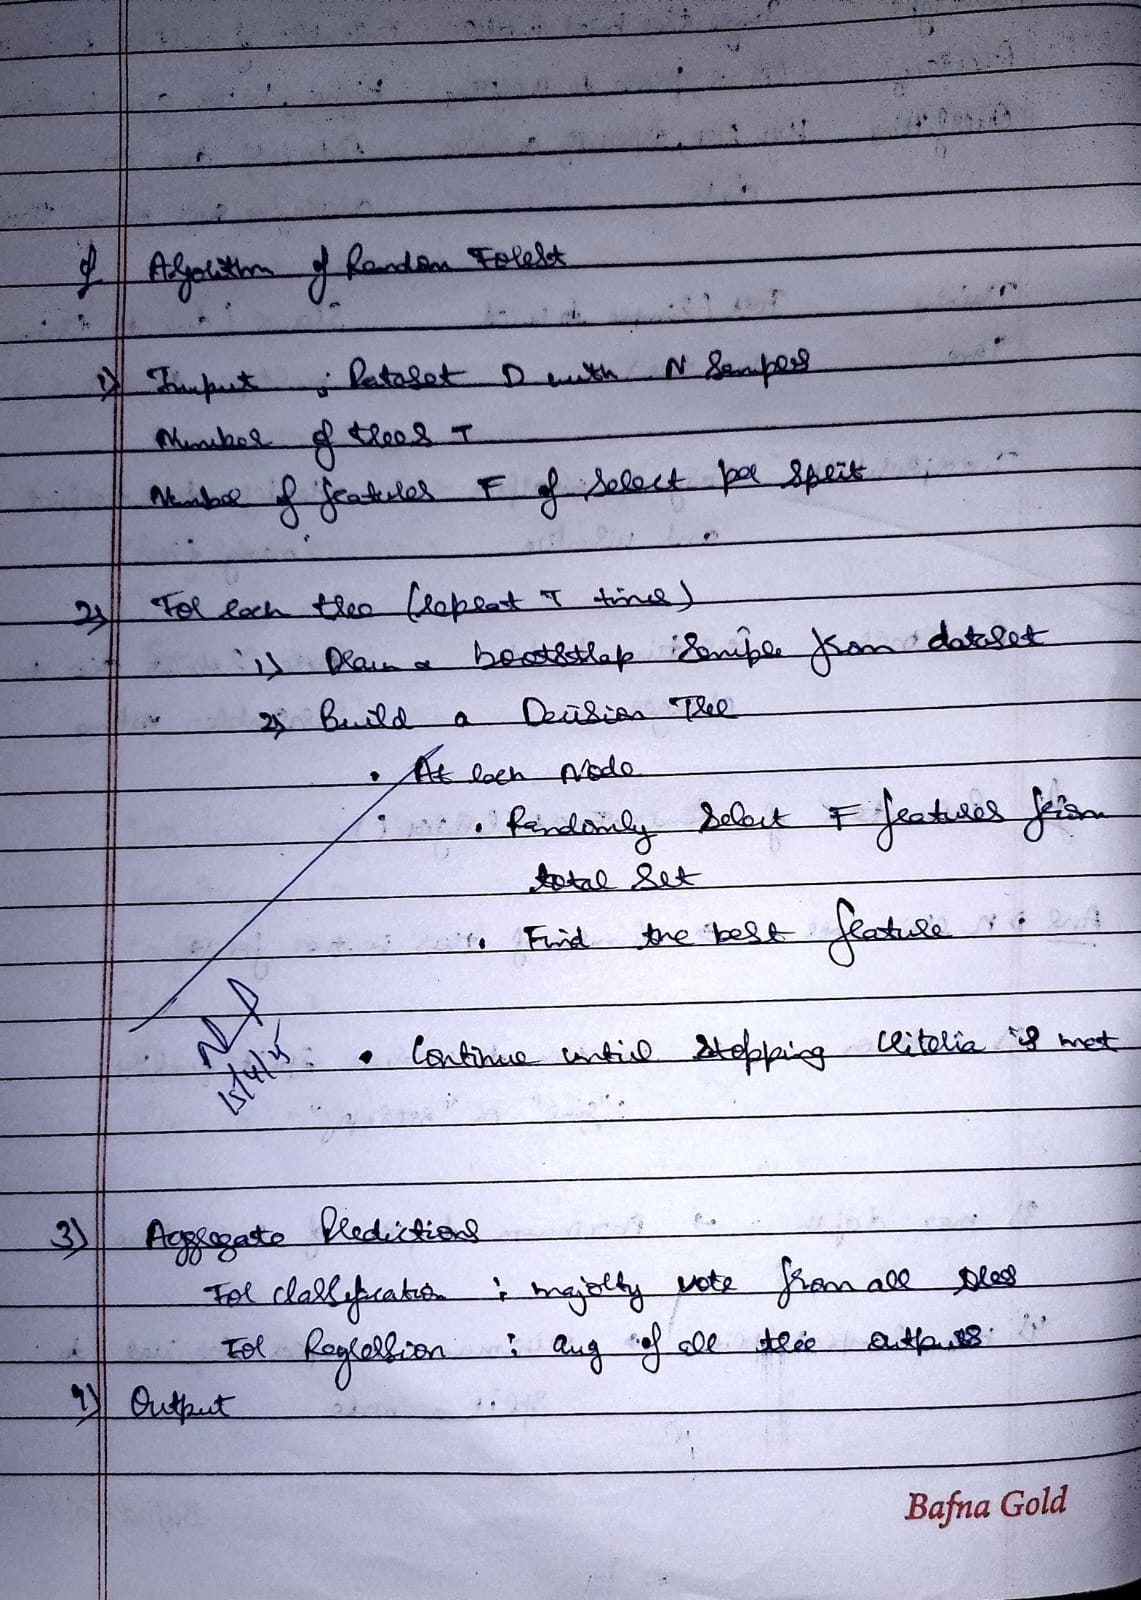 Q Algorithm of Random Forest
1) Input : Dataset D with N Samples
Number of trees T
Number of features F of Select per Split
2) For each tree (repeat T times)
1) Draw a bootstrap Sample from dataset
2) Build a Decision Tree
• At each Node
• Randomly Select F features from
total Set
• Find the best feature
• Continue until Stopping Criteria is met
15/4/25
3) Aggregate Predictions
For classification : majority vote from all trees
For Regression : avg of all tree outputs.
4) Output
Bafna Gold